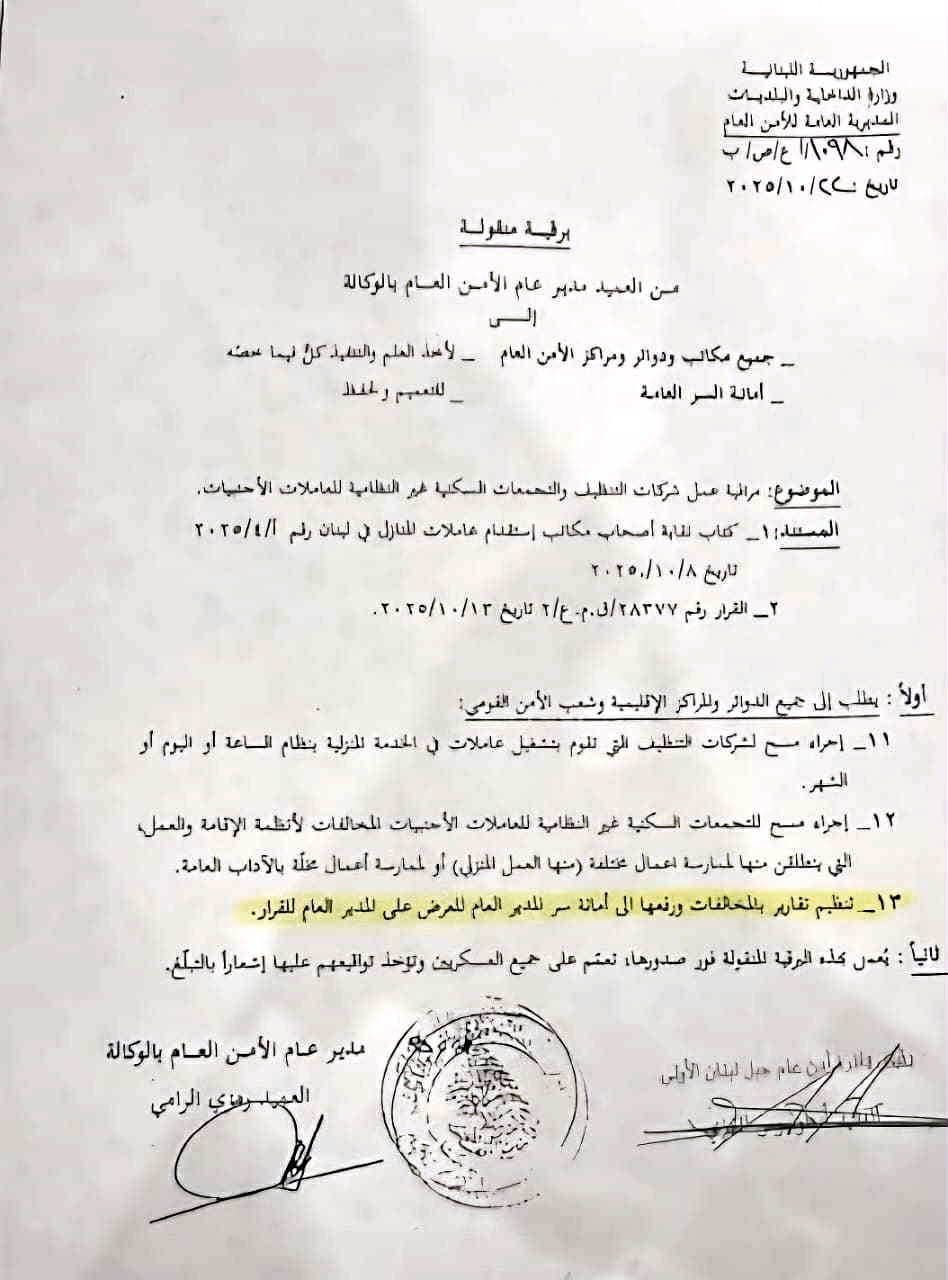 الجمهورية اللبنانية
وزارة الداخلية والبلديات
المديرية العامة للأمن العام
رقم : ١٠٩٨/أ ع/ص/ب
تاريخ : ٢٠٢٥/١٠/٢٢
برقية منقولة
من العميد مدير عام الأمن العام بالوكالة
إلى
_ جميع مكاتب ودوائر ومراكز الأمن العام _ لأخذ العلم والتنفيذ كلٌ فيما خصّه
_ أمانة السر العامة _ للتعميم والحفظ
الموضوع: مراقبة عمل شركات التنظيف والتجمعات السكنية غير النظامية للعاملات الأجنبيات.
المستند: ١_ كتاب نقابة أصحاب مكاتب إستقدام عاملات المنازل في لبنان رقم أ/٢٠٢٥/٤
تاريخ ٢٠٢٥/١٠/٨.
٢_ القرار رقم ٢٨٣٧٧/ق.م.ع/٢ تاريخ ٢٠٢٥/١٠/١٣.
أولاً : يطلب إلى جميع الدوائر والمراكز الإقليمية وشعب الأمن القومي:
١١_ إجراء مسح لشركات التنظيف التي تقوم بتشغيل عاملات في الخدمة المنزلية بنظام الساعة أو اليوم أو
الشهر.
١٢_ إجراء مسح للتجمعات السكنية غير النظامية للعاملات الأجنبيات المخالفات لأنظمة الإقامة والعمل،
التي ينطلقن منها لممارسة اعمال مختلفة (منها العمل المنزلي) أو لممارسة أعمال مخلّة بالآداب العامة.
١٣_ تنظيم تقارير بالمخالفات ورفعها الى أمانة سر المدير العام للعرض على المدير العام للقرار.
ثانياً : يُعمل بهذه البرقية المنقولة فور صدورها، تعمّم على جميع العسكريين وتؤخذ تواقيعهم عليها إشعاراً بالتبلّغ.
مدير عام الأمن العام بالوكالة
العميد الرامي
أمن عام جبل لبنان الأولى